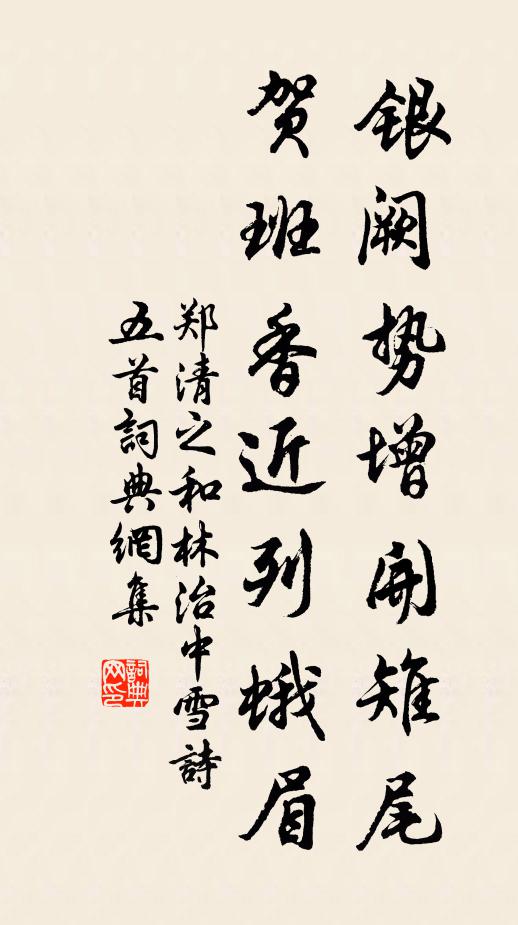 银阙势增开雉尾
贺班香近列蛾眉
郑清之和林治中雪詩
五首詞典網集
詞典网印